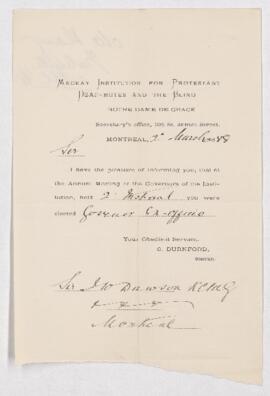 Mackay Institution for Protestant
Deaf-Mutes and the Blind
Notre Dame de Grace
Secretary's office,
Montreal, 2 March 188
Sir
I have the pleasure of informing you, that at
the Annual Meeting of the Governors of the Insti-
tution, held 2 Instant you were
elected Governor Ex-officio
Your Obedient Servant,
C. Durnford,
Sir J W Dawson KCMG
Montreal